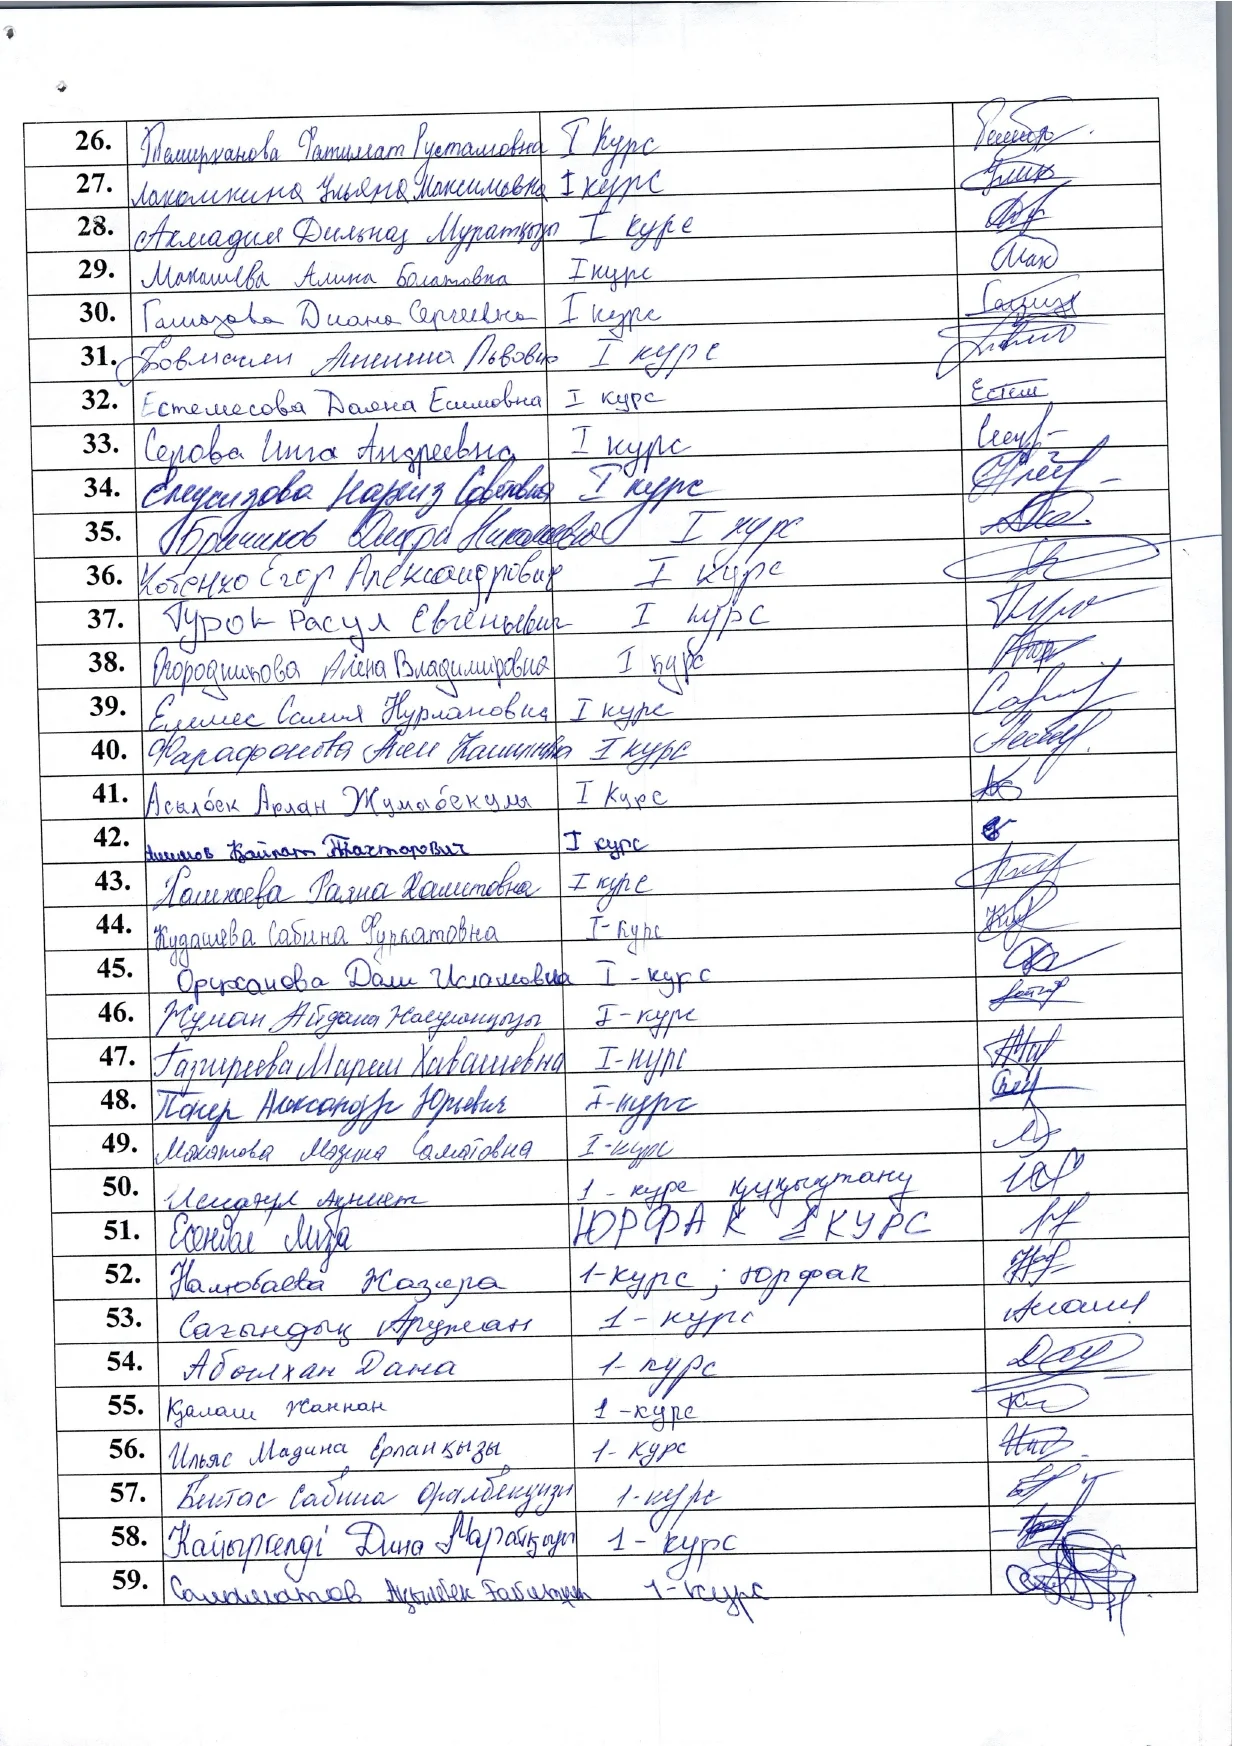 26. Темирханова Фатимат Рустамовна I Курс
27. Лакомкина Ульяна Максимовна I курс
28. Акмадия Дильназ Муратқызы I курс
29. Макашева Алина Болатовна I курс
30. Гамазова Диана Сергеевна I курс
31. Львовна I курс
32. Естемесова Даяна Есимовна I курс Естем
33. Серова Инга Андреевна I курс
34. Елеусизова Наргиз Советовна I курс
35. Николаевна I курс
36. Котенко Егор Александрович I курс
37. Турок Расул Евгеньевич I курс
38. Огородникова Алена Владимировна I курс
39. Елемес Салия Нурлановна I курс
40. Фарафонова I курс
41. Асылбек Арлан Жумабекулы I Курс
42. Кайрат I курс
43. Раяна Хамитовна I курс
44. Кудашева Сабина Фуркатовна I-курс
45. Оружанова Дали Исламовна I - курс
46. Жуман Айдана I-курс
47. Газгиреева Марем Хавашевна I-курс
48. Александр Юрьевич I-курс
49. Махатова Мадина Саматовна I-курс
50. 1 - курс құқықтану
51. Лиза ЮРФАК 1 КУРС
52. Налюбаева Назера 1-курс ; юрфак
53. Сағындық Аружан 1 - курс
54. Абылхан Дана 1- курс
55. Қалаш Жаннан 1 -курс
56. Ильяс Мадина Ерланқызы 1- курс
57. Бектас Сабина Оралбекқызы 1-курс
58. Кайыргелді Дина Маратқызы 1 - курс
59. Саламатов Ақылбек 1-курс